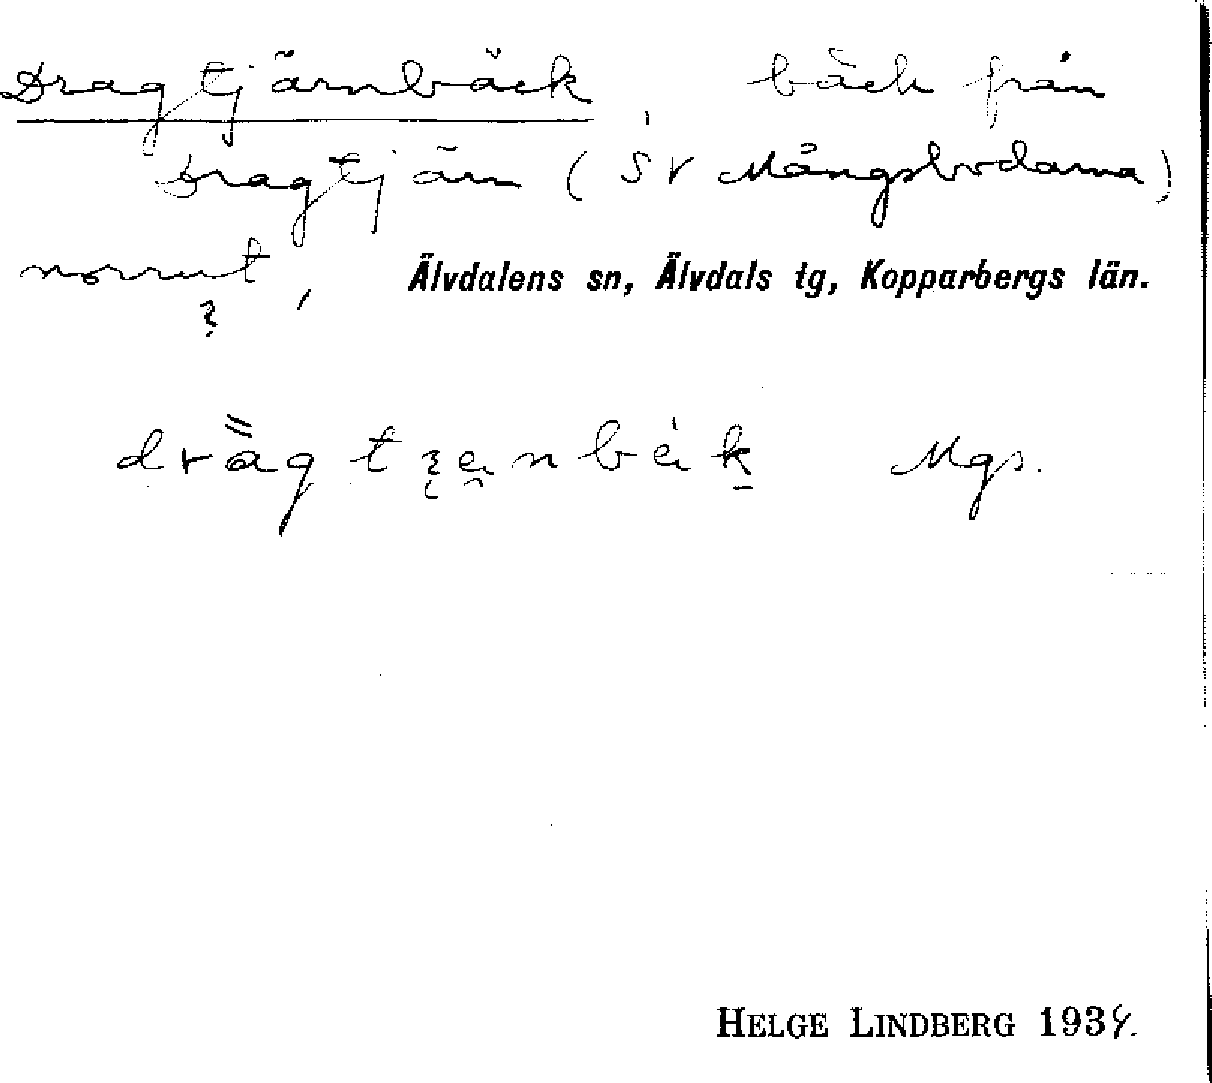 Dragtjärnbäck, bäck från
Dragtjärn (SV Mångsbodarna)
norrut, Älvdalens sn, Älvdals tg, Kopparbergs län.
Mgs.
HELGE LINDBERG 1934.